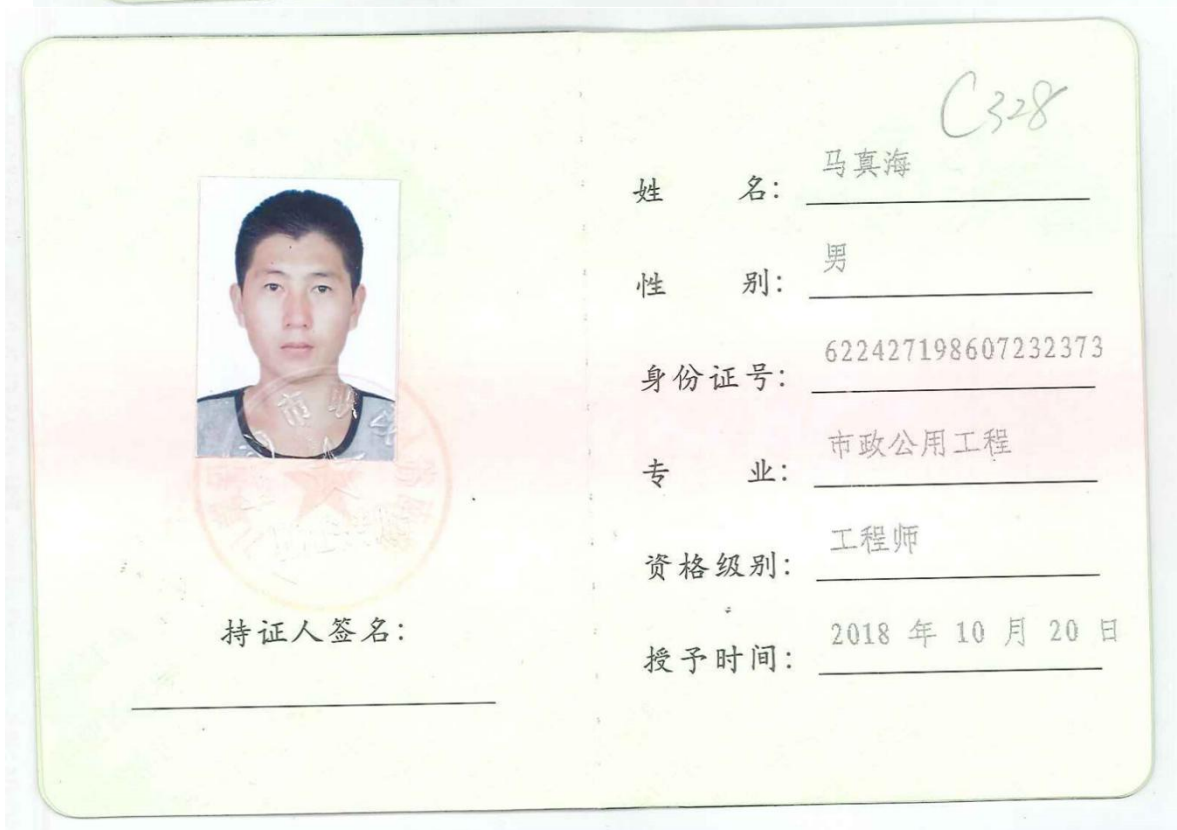 C328
姓 名： 马真海
性 别： 男
身份证号： 622427198607232373
专 业： 市政公用工程
资格级别： 工程师
授予时间： 2018 年 10 月 20 日
持证人签名：